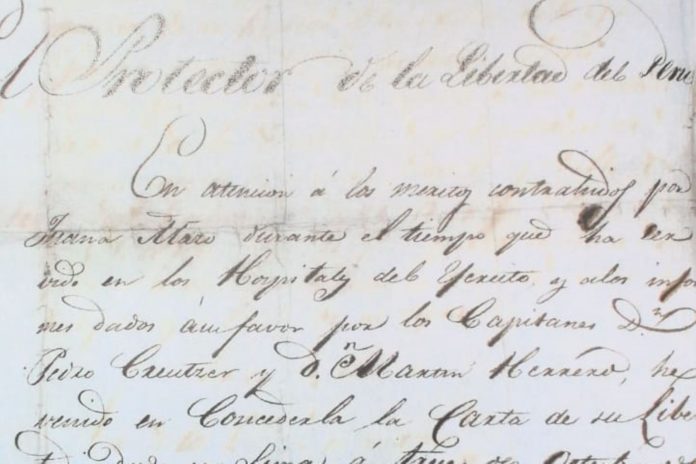 l Protector de la Libertad del Peru
En atencion á los meritos contrahidos por
Juana durante el tiempo que ha ser
vido en los Hospitales del Exercito, y alos infor
mes dados ásu favor por los Capitanes D.n
Pedro Creutzer y D.n Martin Herrero, he
venido en Concederla la Carta de su Liber
Lima á